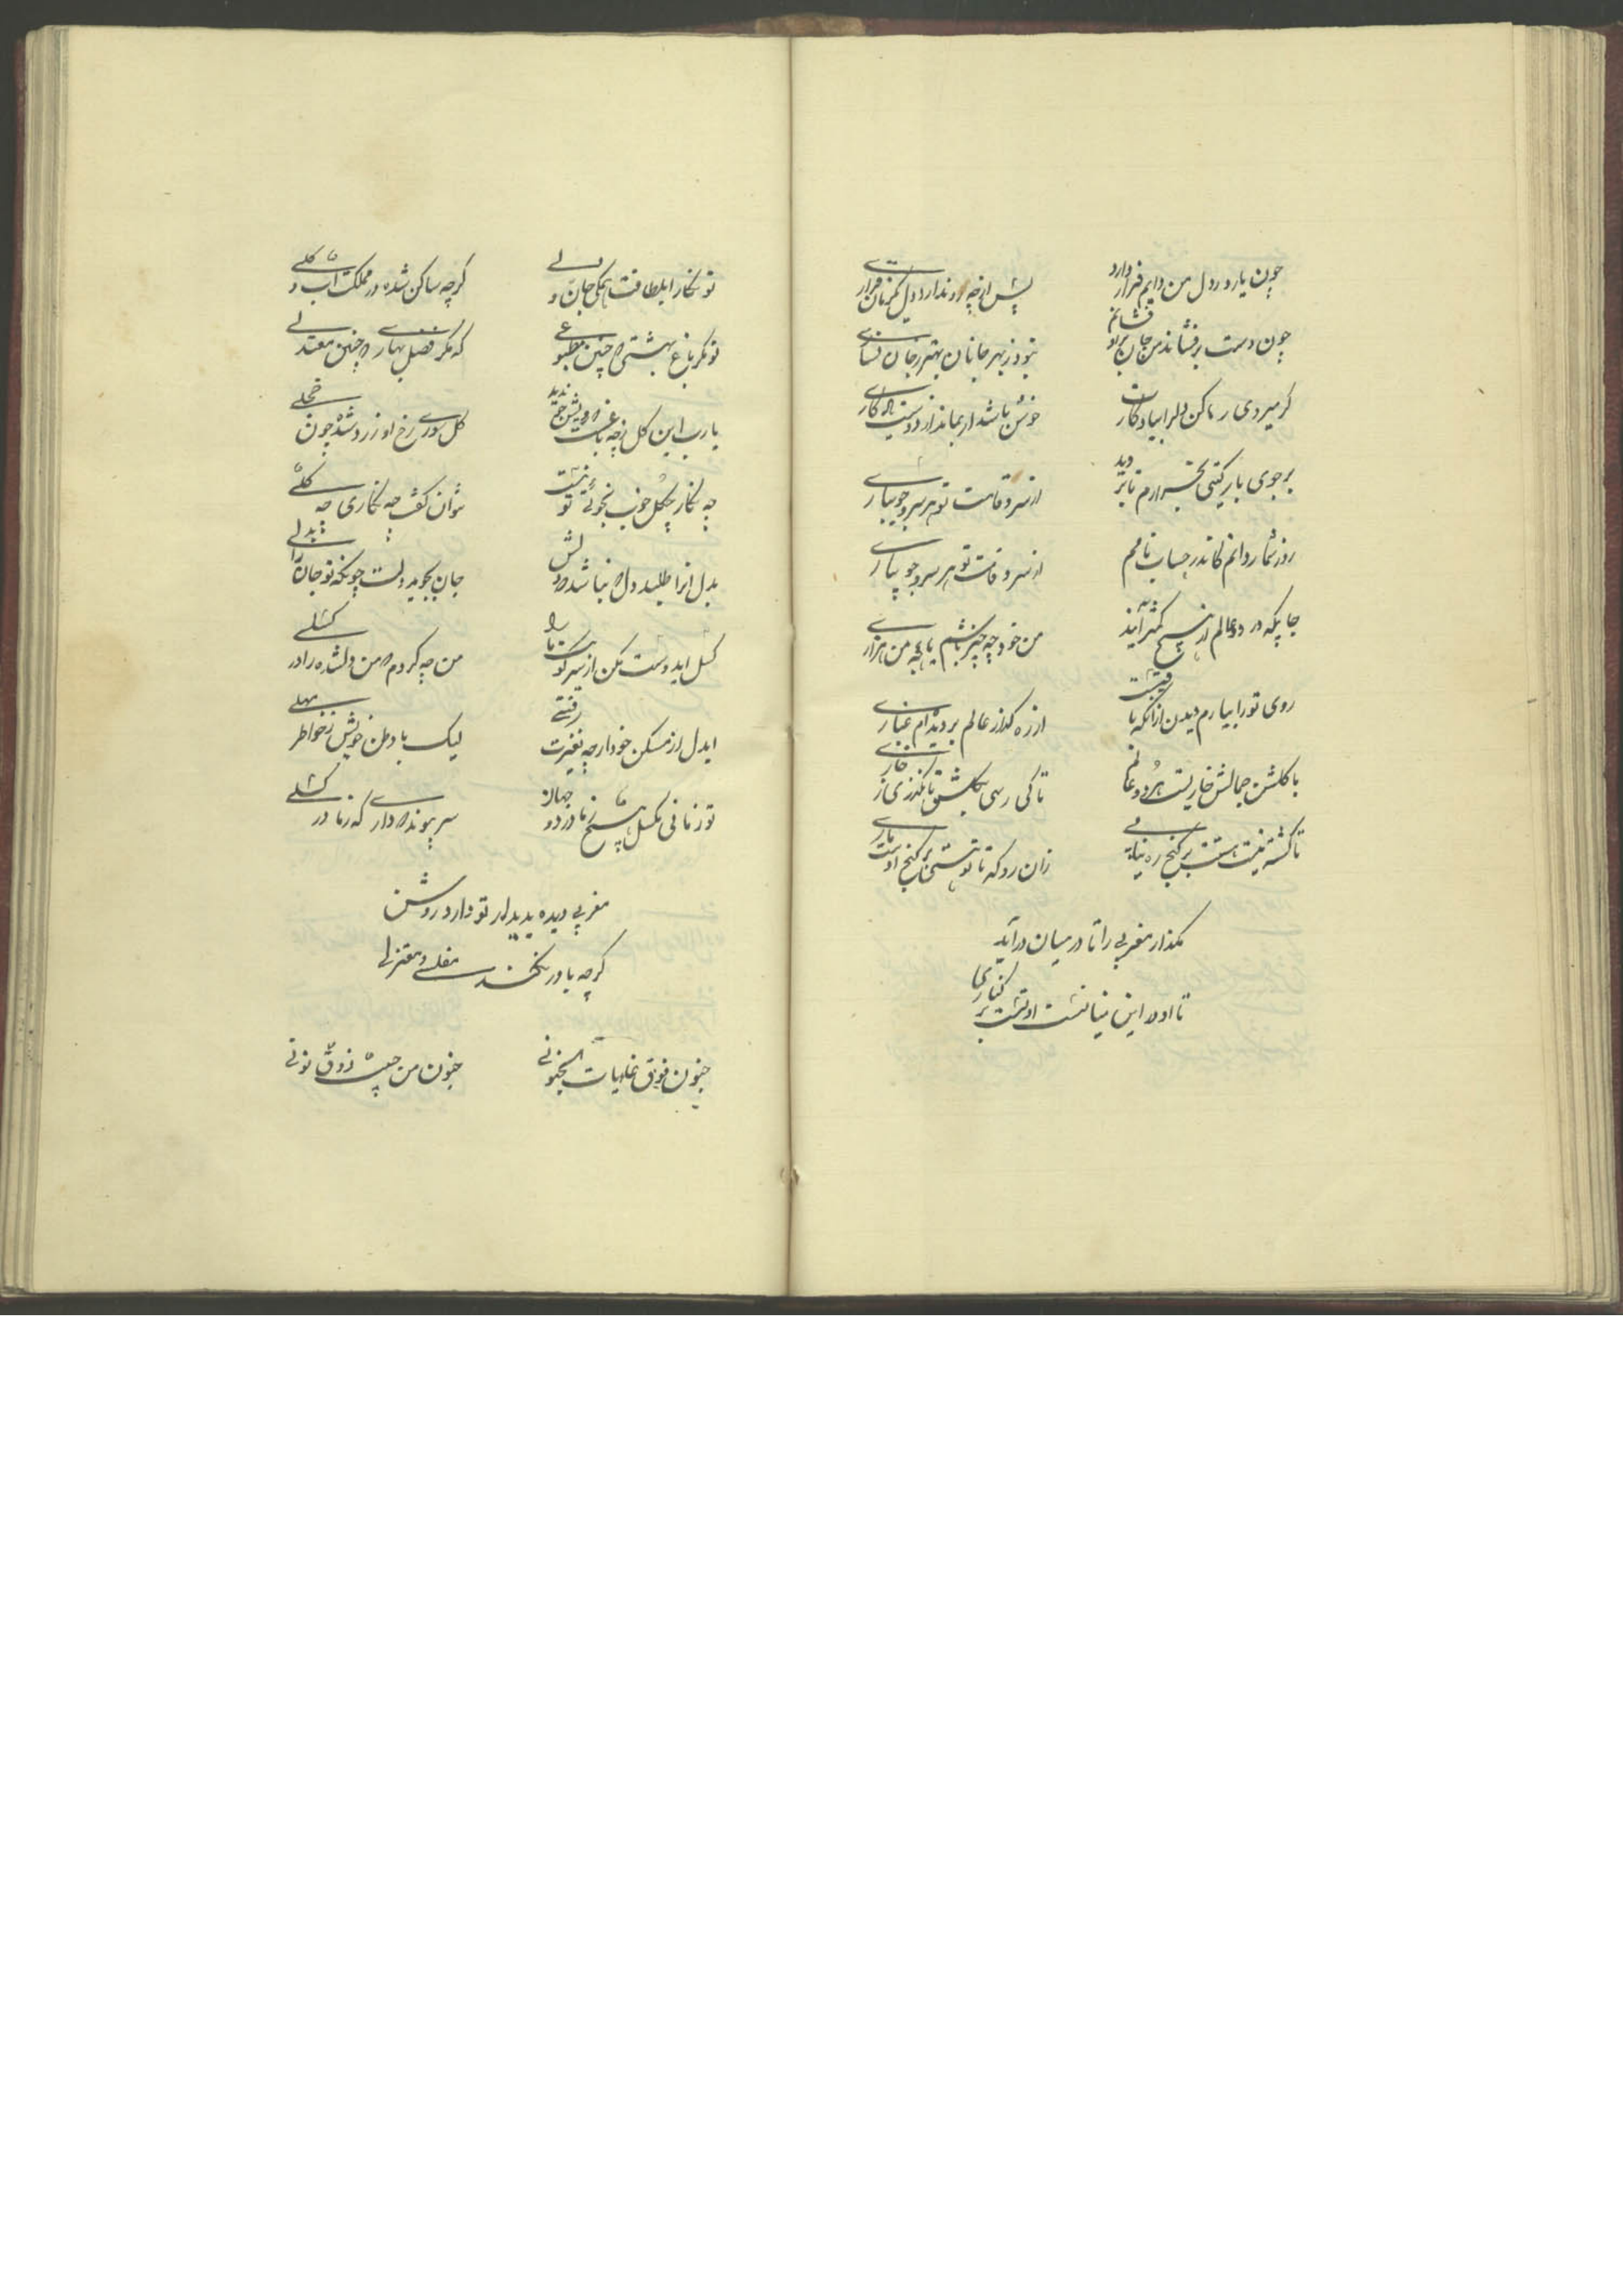 چون یار در دل من دایم قرار دارد
پس از چه رو ندارد دل یکزمان قراری
چون دست برفشاند من جان برو فشانم
نبود ز بهر جانان بهتر ز جان نثاری
گر میروی رها کن دلرا بیادگارت
خوش باشد ار بماند از دوست یادگاری
بر جوی بار کیتی
دید
از سرو قامت تو هر سرو جویباری
روز شمار دانم کاندر حساب نایم
از سرو قامت تو هر سرو جویباری
جاییکه در دو عالم از هیچ کمتر آیند
من خود چه چیز باشم یا چه من هزاری
روی تو را نیارم دیدن از آنکه باقیست
از ره گذار عالم بر دیده‌ام غباری
با گلشن جمالش خاریست هر دو عالم
تا کی رسی بگلشن تا نگذری ز خاری
تا کشته نیست هستیت بر گنج ره نیابی
زان رو که تا تو هستی بر گنج اوست ماری
مگذار مغربی را تا در میان درآید
تا او در این میانست او نیست بر کناری
تو نگارا بلطافت همگی جان و دلی
گرچه ساکن شده در مملکت آب و گلی
تو مگر باغ بهشتی که چنین مطبوعی
که مگر فصل بهاری که چنین معتدلی
یارب این گل ز چه باغست که پیش رخ
ندید
گل سوری رخ او زرد شد چون خجلی
چه نگار چگل خوب نجوئی تو نیست
نتوان گفت چه نگاری چه گلی
بدل آنرا طلبد دل که نباشد بدلش
جان نجوید بدلت چونکه تو جانرا بدلی
گسل ایدوست مکن از سر کویت ما را
من چه کردم که من دلشده را در گسلی
ایدل از مسکن خود ارچه بغربت رفتی
لیک با وطن خویش ز خواطر بهلی
تو زمانی نگسل هیچ ز ما در دو جهان
سر پیوند که داری که ز ما در گسلی
مغربی دیده بدیدار تو دارد روشن
گرچه باور نکند مفلس و معتزلی
جنون فوق غایات الجنونی
جنون من چیست ذوق نونی